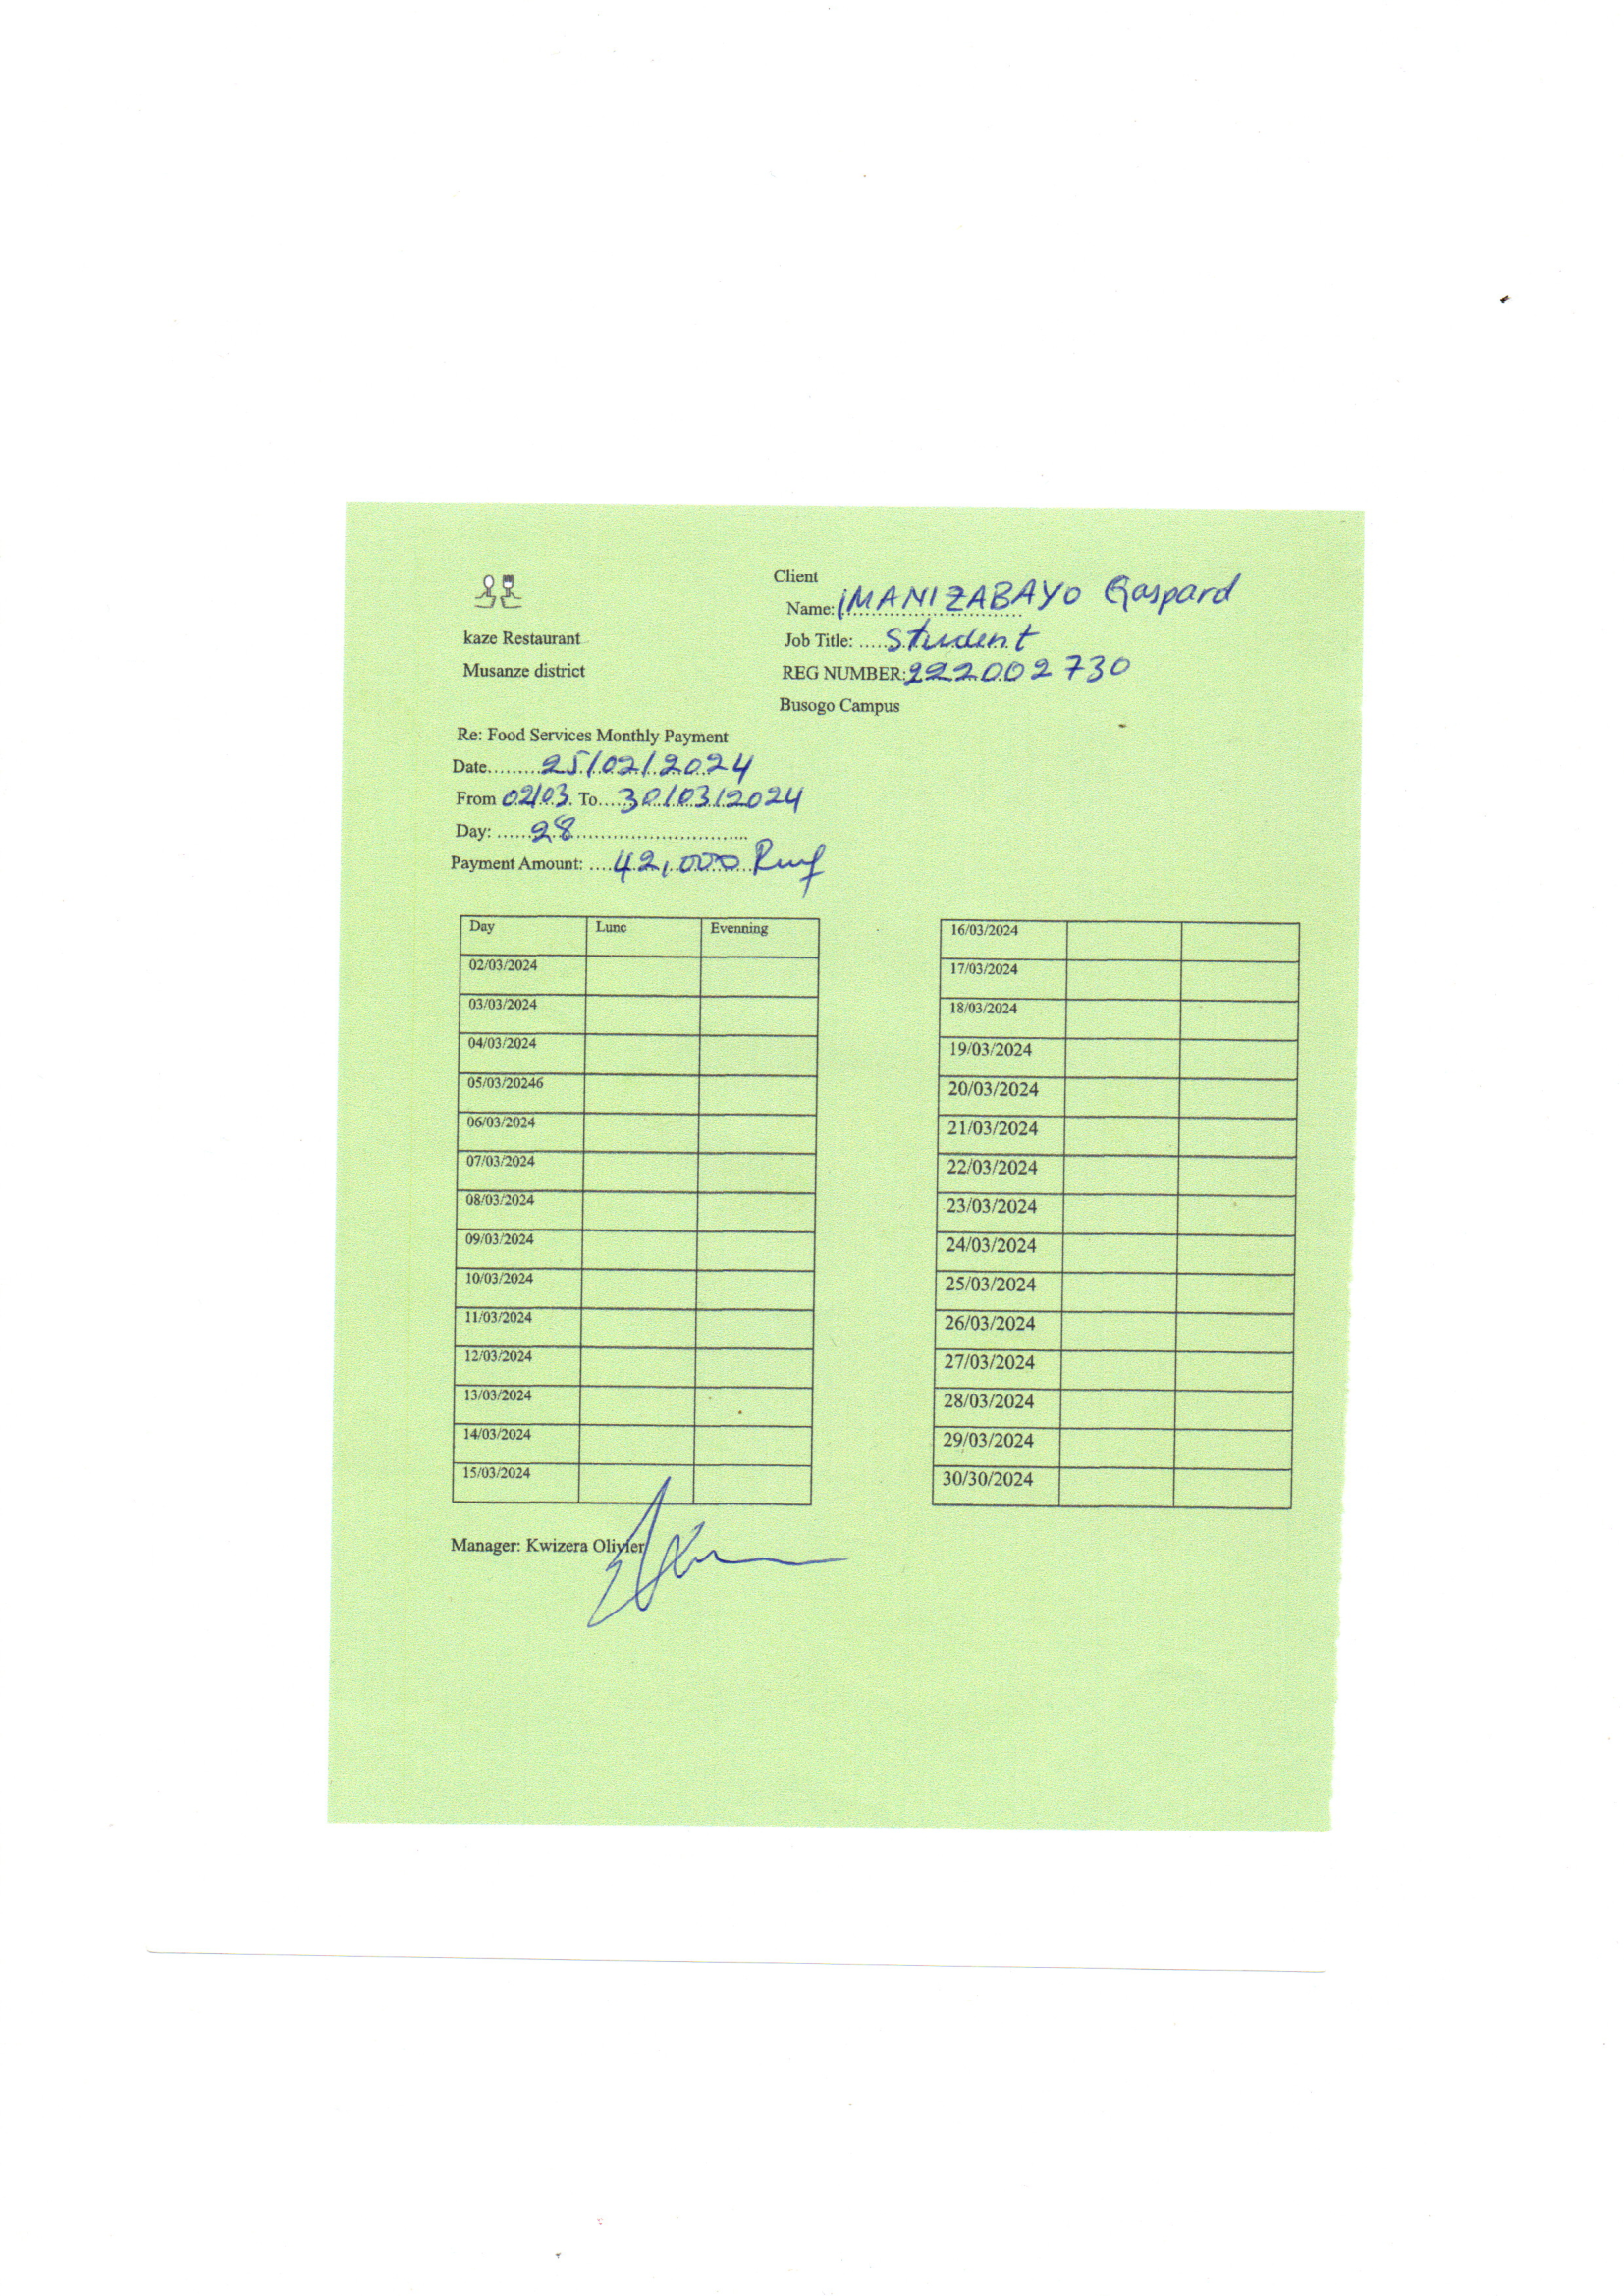 Client
Name: IMANIZABAYO Gaspard
kaze Restaurant
Job Title: .....Student
Musanze district
REG NUMBER: 222002730
Busogo Campus
Re: Food Services Monthly Payment
Date.........25/02/2024
From 02/03. To....30/03/2024
Day: ......28..............................
Payment Amount: ....42,000 Rwf
Day Lunc Evenning
02/03/2024
03/03/2024
04/03/2024
05/03/20246
06/03/2024
07/03/2024
08/03/2024
09/03/2024
10/03/2024
11/03/2024
12/03/2024
13/03/2024
14/03/2024
15/03/2024
16/03/2024
17/03/2024
18/03/2024
19/03/2024
20/03/2024
21/03/2024
22/03/2024
23/03/2024
24/03/2024
25/03/2024
26/03/2024
27/03/2024
28/03/2024
29/03/2024
30/30/2024
Manager: Kwizera Olivier